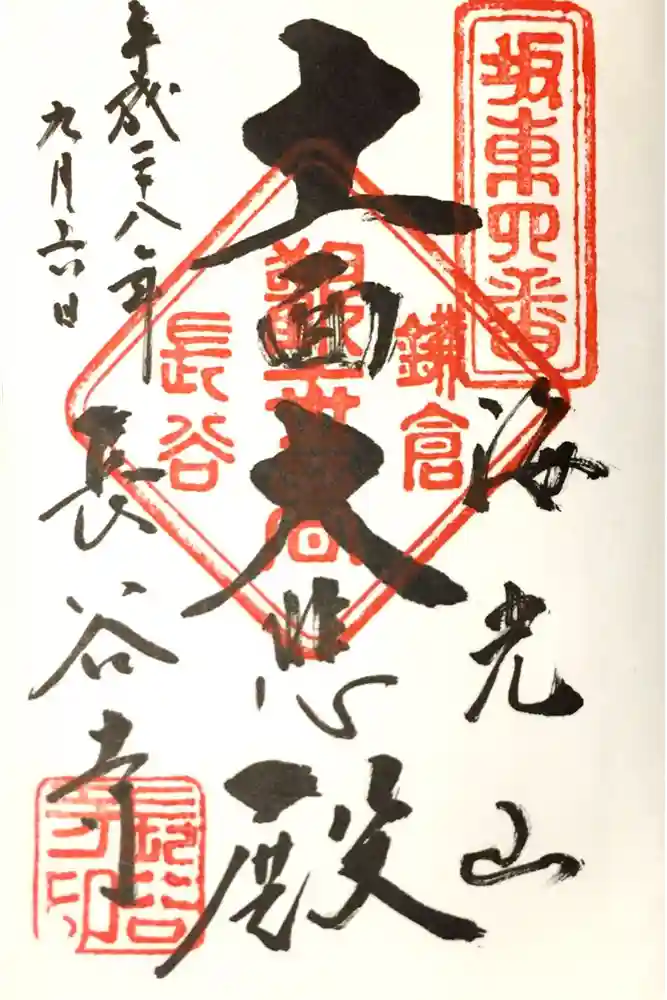 坂東四番
海光山
十一面大悲殿
鎌倉
観世音
長谷
平成二十八年
九月六日
長谷寺
長谷寺印